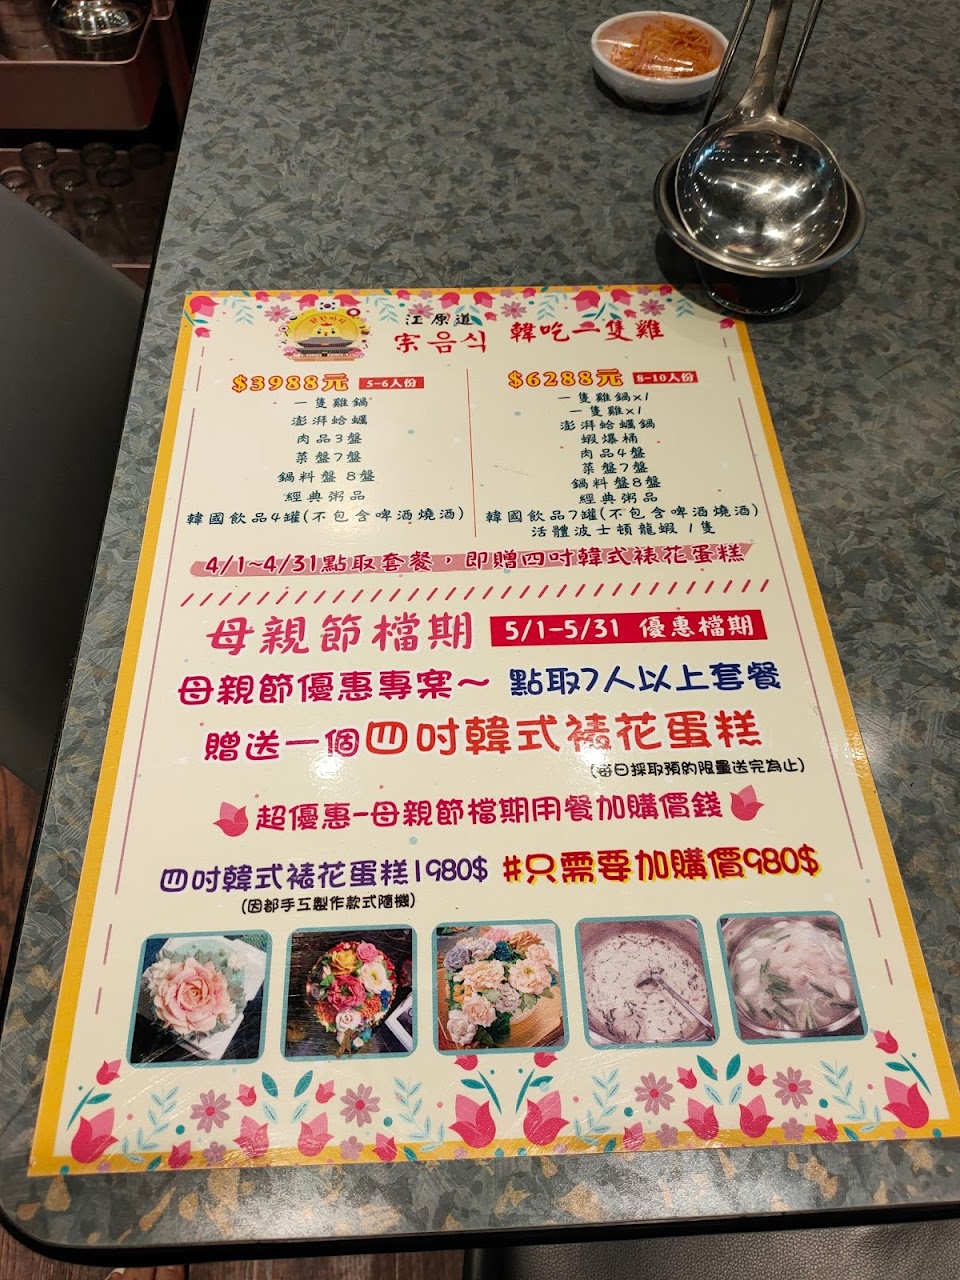 닭한마리
江原道
宗음식 韓吃二隻雞
$3988元 5-6人份
一隻雞鍋
澎湃蛤蠣
肉品3盤
菜盤7盤
鍋料盤 8盤
經典粥品
韓國飲品4罐(不包含啤酒燒酒)
$6288元 8-10人份
一隻雞鍋x1
一隻雞x1
澎湃蛤蠣鍋
蝦爆桶
肉品4盤
菜盤7盤
鍋料盤8盤
經典粥品
韓國飲品7罐(不包含啤酒燒酒)
活體波士頓龍蝦 1隻
4/1~4/31點取套餐，即贈四吋韓式裱花蛋糕
母親節檔期 5/1-5/31 優惠檔期
母親節優惠專案~ 點取7人以上套餐
贈送一個四吋韓式裱花蛋糕
(每日採取預約限量送完為止)
超優惠-母親節檔期用餐加購價錢
四吋韓式裱花蛋糕1980$ #只需要加購價980$
(因都手互製作款式隨機)